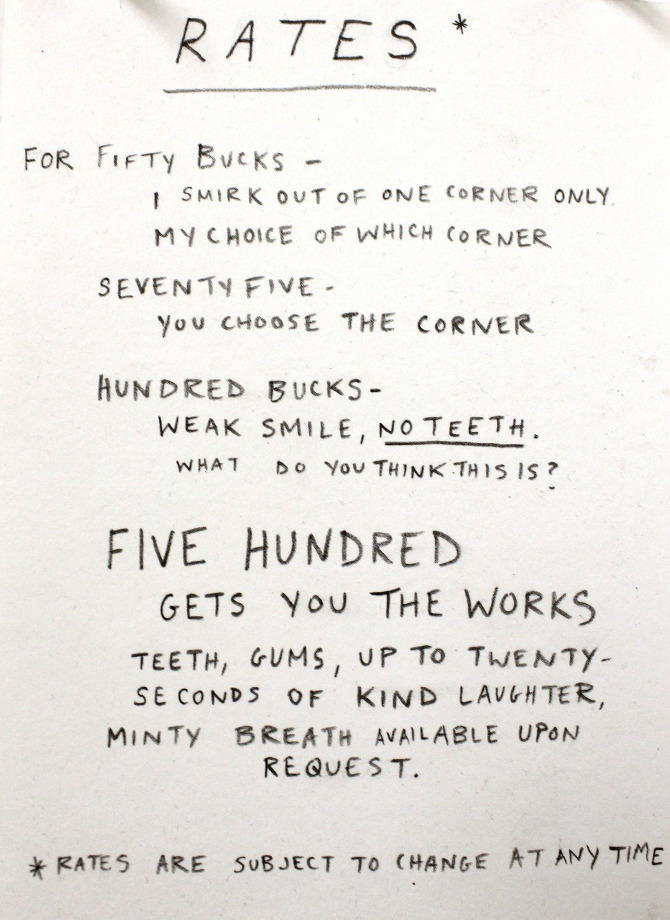 RATES*
FOR FIFTY BUCKS -
I SMIRK OUT OF ONE CORNER ONLY.
MY CHOICE OF WHICH CORNER
SEVENTY FIVE -
YOU CHOOSE THE CORNER
HUNDRED BUCKS -
WEAK SMILE, NO TEETH.
WHAT DO YOU THINK THIS IS?
FIVE HUNDRED
GETS YOU THE WORKS
TEETH, GUMS, UP TO TWENTY-
SECONDS OF KIND LAUGHTER,
MINTY BREATH AVAILABLE UPON
REQUEST.
* RATES ARE SUBJECT TO CHANGE AT ANY TIME